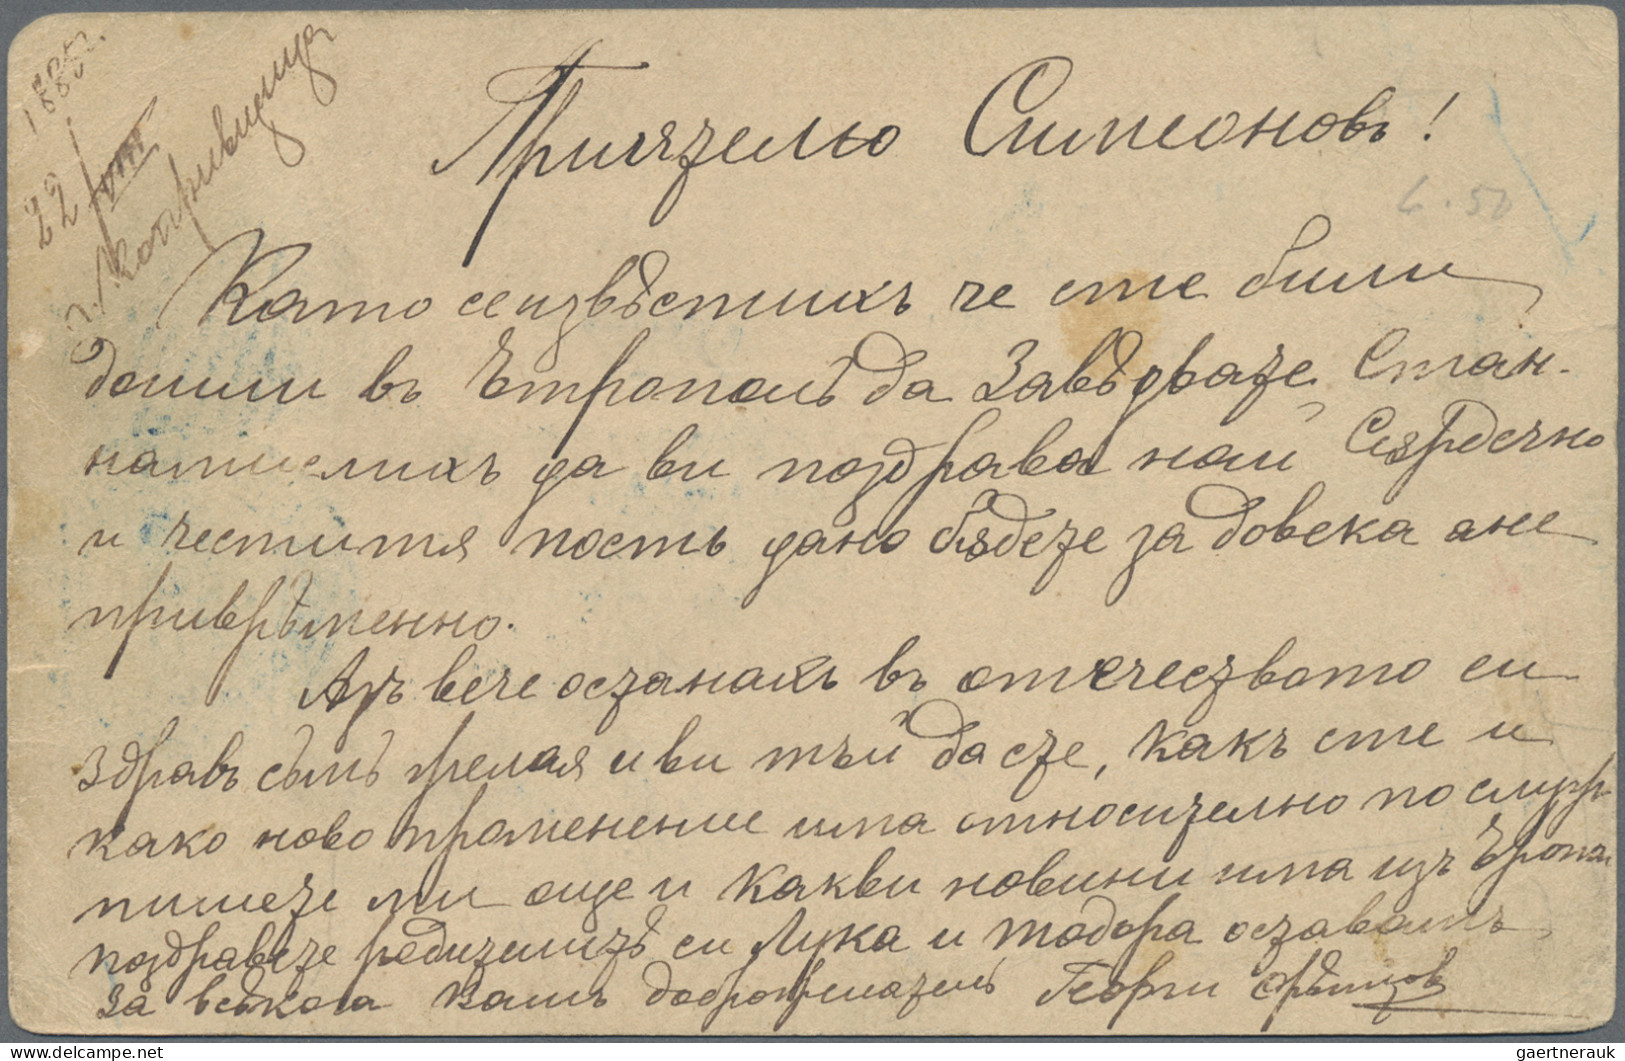 1885 г.
22/VIII
г. Копривщица
Приятелю Симеоновъ!
Като се извѣстихъ че сте били
дошли въ Етрополѣ да Завѣдвате Стан.
намислихъ да ви поздрава най Сърдечно
и честитя постъ дано бѫдете за довека а не
привремѣнно.
Азъ вече останахъ въ отечеството си
здравъ съмъ желая и ви тъй да сте, какъ сте и
како ново променение има относително по служ
пишете ми още и какви новини има изъ
поздравете родителитѣ си Лука и Тодора оставамъ
за всѣкога Вашъ доброжелателъ Георги
6.50
delcampe.net
gaertnerauk